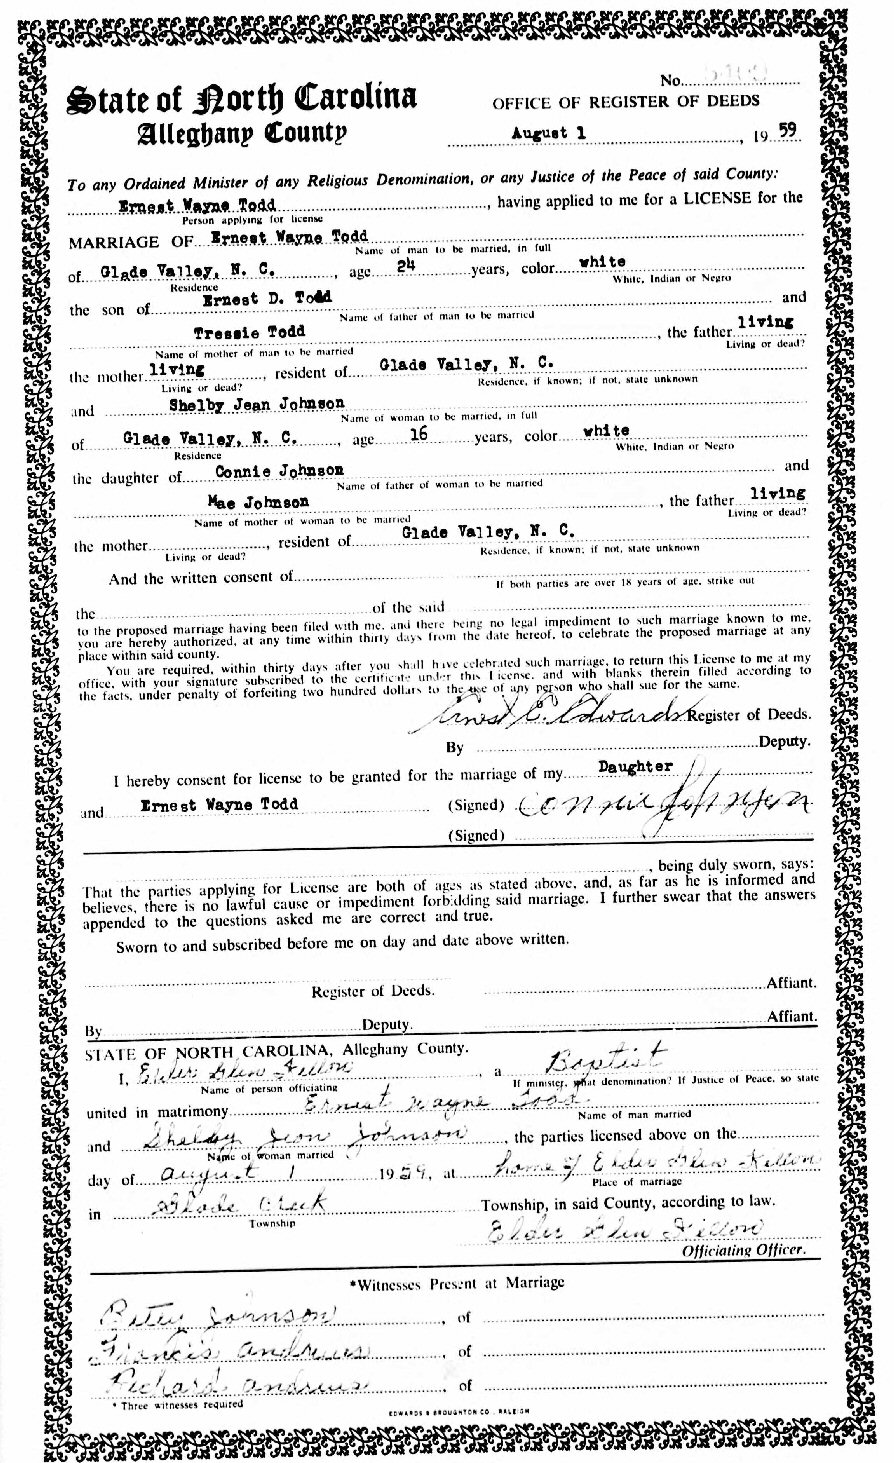 No.
State of North Carolina
OFFICE OF REGISTER OF DEEDS
Alleghany County
August 1, 19 59
To any Ordained Minister of any Religious Denomination, or any Justice of the Peace of said County:
Ernest Wayne Todd, having applied to me for a LICENSE for the
Person applying for license
MARRIAGE OF Ernest Wayne Todd
Name of man to be married, in full
of Glade Valley, N. C., age 24 years, color white
Residence White, Indian or Negro
the son of Ernest D. Todd and
Name of father of man to be married
Tressie Todd, the father living
Name of mother of man to be married Living or dead?
the mother living, resident of Glade Valley, N. C.
Living or dead? Residence, if known; if not, state unknown
and Shelby Jean Johnson
Name of woman to be married, in full
of Glade Valley, N. C., age 16 years, color white
Residence White, Indian or Negro
the daughter of Connie Johnson and
Name of father of woman to be married
Mae Johnson, the father living
Name of mother of woman to be married Living or dead?
the mother, resident of Glade Valley, N. C.
Living or dead? Residence, if known; if not, state unknown
And the written consent of
If both parties are over 18 years of age, strike out
the of the said
to the proposed marriage having been filed with me, and there being no legal impediment to such marriage known to me,
you are hereby authorized, at any time within thirty days from the date hereof, to celebrate the proposed marriage at any
place within said county.
You are required, within thirty days after you shall have celebrated such marriage, to return this License to me at my
office, with your signature subscribed to the certificate under this License, and with blanks therein filled according to
the facts, under penalty of forfeiting two hundred dollars to the use of any person who shall sue for the same.
Ernest E. Edwards Register of Deeds.
By Deputy.
I hereby consent for license to be granted for the marriage of my Daughter
and Ernest Wayne Todd (Signed) Connie Johnson
(Signed)
, being duly sworn, says:
That the parties applying for License are both of ages as stated above, and, as far as he is informed and
believes, there is no lawful cause or impediment forbidding said marriage. I further swear that the answers
appended to the questions asked me are correct and true.
Sworn to and subscribed before me on day and date above written.
Register of Deeds. Affiant.
By Deputy. Affiant.
STATE OF NORTH CAROLINA, Alleghany County.
I, Elder Glen Killon, a Baptist
Name of person officiating If minister, what denomination? If Justice of Peace, so state
united in matrimony Ernest Wayne Todd
Name of man married
and Shelby Jean Johnson, the parties licensed above on the
Name of woman married
day of August 1 1959, at home of Elder Glen Killon
Place of marriage
in Glade Creek Township, in said County, according to law.
Township
Elder Glen Killon
Officiating Officer.
*Witnesses Present at Marriage
Betty Johnson, of
Francis Andrews, of
Richard Andrews, of
* Three witnesses required
EDWARDS & BROUGHTON CO., RALEIGH